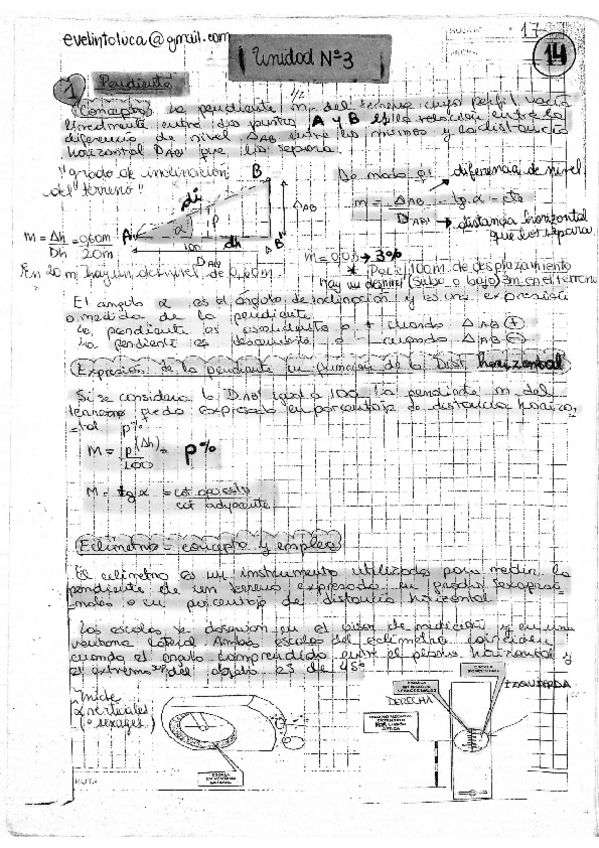 evelintoluca@gmail.com
Unidad N°3
17
14
1 Pendiente
Concepto: la pendiente m del terreno cuyo perfil varía
linealmente entre dos puntos A y B es la relación entre la
diferencia de nivel ΔAB entre los mismos y la distancia
horizontal DAB' que los separa.
"grado de inclinación
del terreno"
B
di
A
α
P
ΔAB
100
dh
B'
DAB'
De modo q'
diferencia de nivel
m = ΔAB = tg. α = cte
DAB'
distancia horizontal
que los separa
m = Δh = 0,60m
Dh 20m
En 20 m hay un desnivel de 0,60m.
m = 0,03 → 3%
* Por c/ 100m de desplazamiento
hay un desnivel (subo o bajo) 3m en el terreno
El ángulo α es el ángulo de inclinación y es una expresión
o medida de la pendiente.
la pendiente es ascendente o + cuando ΔAB (+)
la pendiente es descendente o - cuando ΔAB (-)
Expresión de la pendiente en función de la Dist horizontal
Si se considera la DAB' igual a 100 la pendiente m del
terreno puede expresarse en porcentaje de distancia horizon-
tal p%
M = p (Δh) = p%
100
M = tg α = cat opuesto
cat adyacente
Eclímetro = concepto y empleo
El eclímetro es un instrumento utilizado para medir la
pendiente de un terreno expresado en grados sexagesi-
males o en porcentaje de distancia horizontal.
Las escalas se observan en el visor de medición y en una
ventana lateral. Ambas escalas del eclímetro coinciden
cuando el ángulo comprendido entre el plano horizontal y
el extremo sup del objeto es de 45°
Mide
∡ verticales
(° sexages)
DERECHA
IZQUIERDA